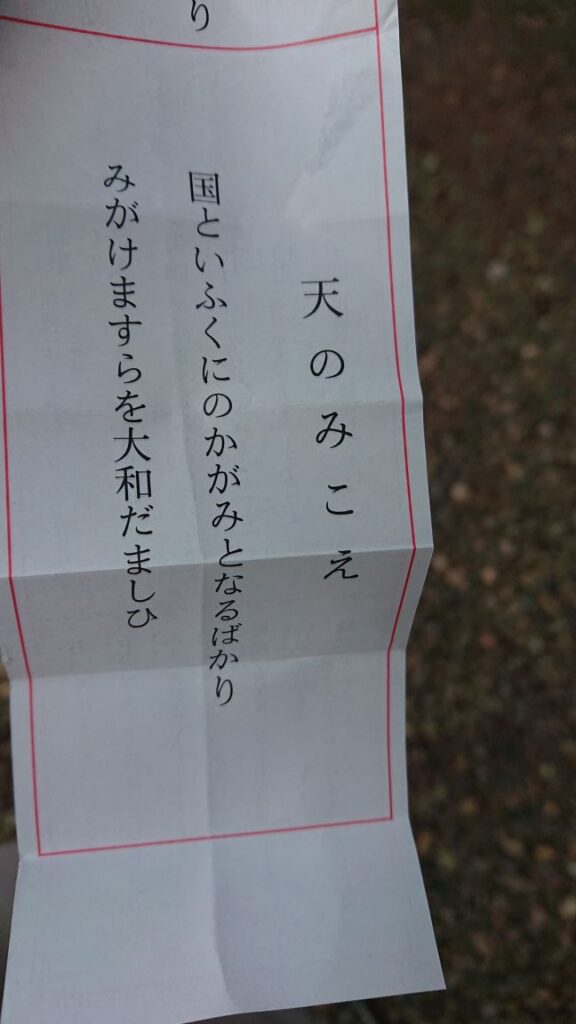 り
天のみこえ
国といふくにのかがみとなるばかり
みがけますらを大和だましひ